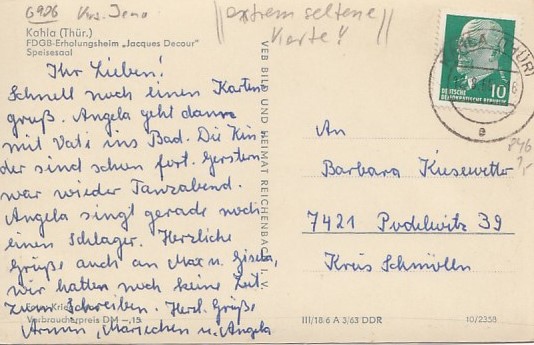 6906 Krs. Jena
"extrem seltene
Karte!"
Kahla (Thür.)
FDGB-Erholungsheim „Jacques Decour"
Speisesaal
Ihr Lieben!
Schnell noch einen Karten
gruß. Angela geht dann
mit Vati ins Bad. Die Kin
der sind schon fort. Gestern
war wieder Tanzabend.
Angela singt gerade noch
einen Schlager. Herzliche
Grüße auch an Max u. Gisela,
wir hatten noch keine Zeit
zum Schreiben. Herzl. Grüße
Armin, Mariechen u. Angela
Verbraucherpreis DM –,15
VEB BILD UND HEIMAT REICHENBACH I. V.
DEUTSCHE
DEMOKRATISCHE REPUBLIK
10
KAHLA (THÜR)
e
An
Barbara Kiesewetter
7421 Podelwitz 39
Kreis Schmölln
III/18/6 A 3/63 DDR
10/2358